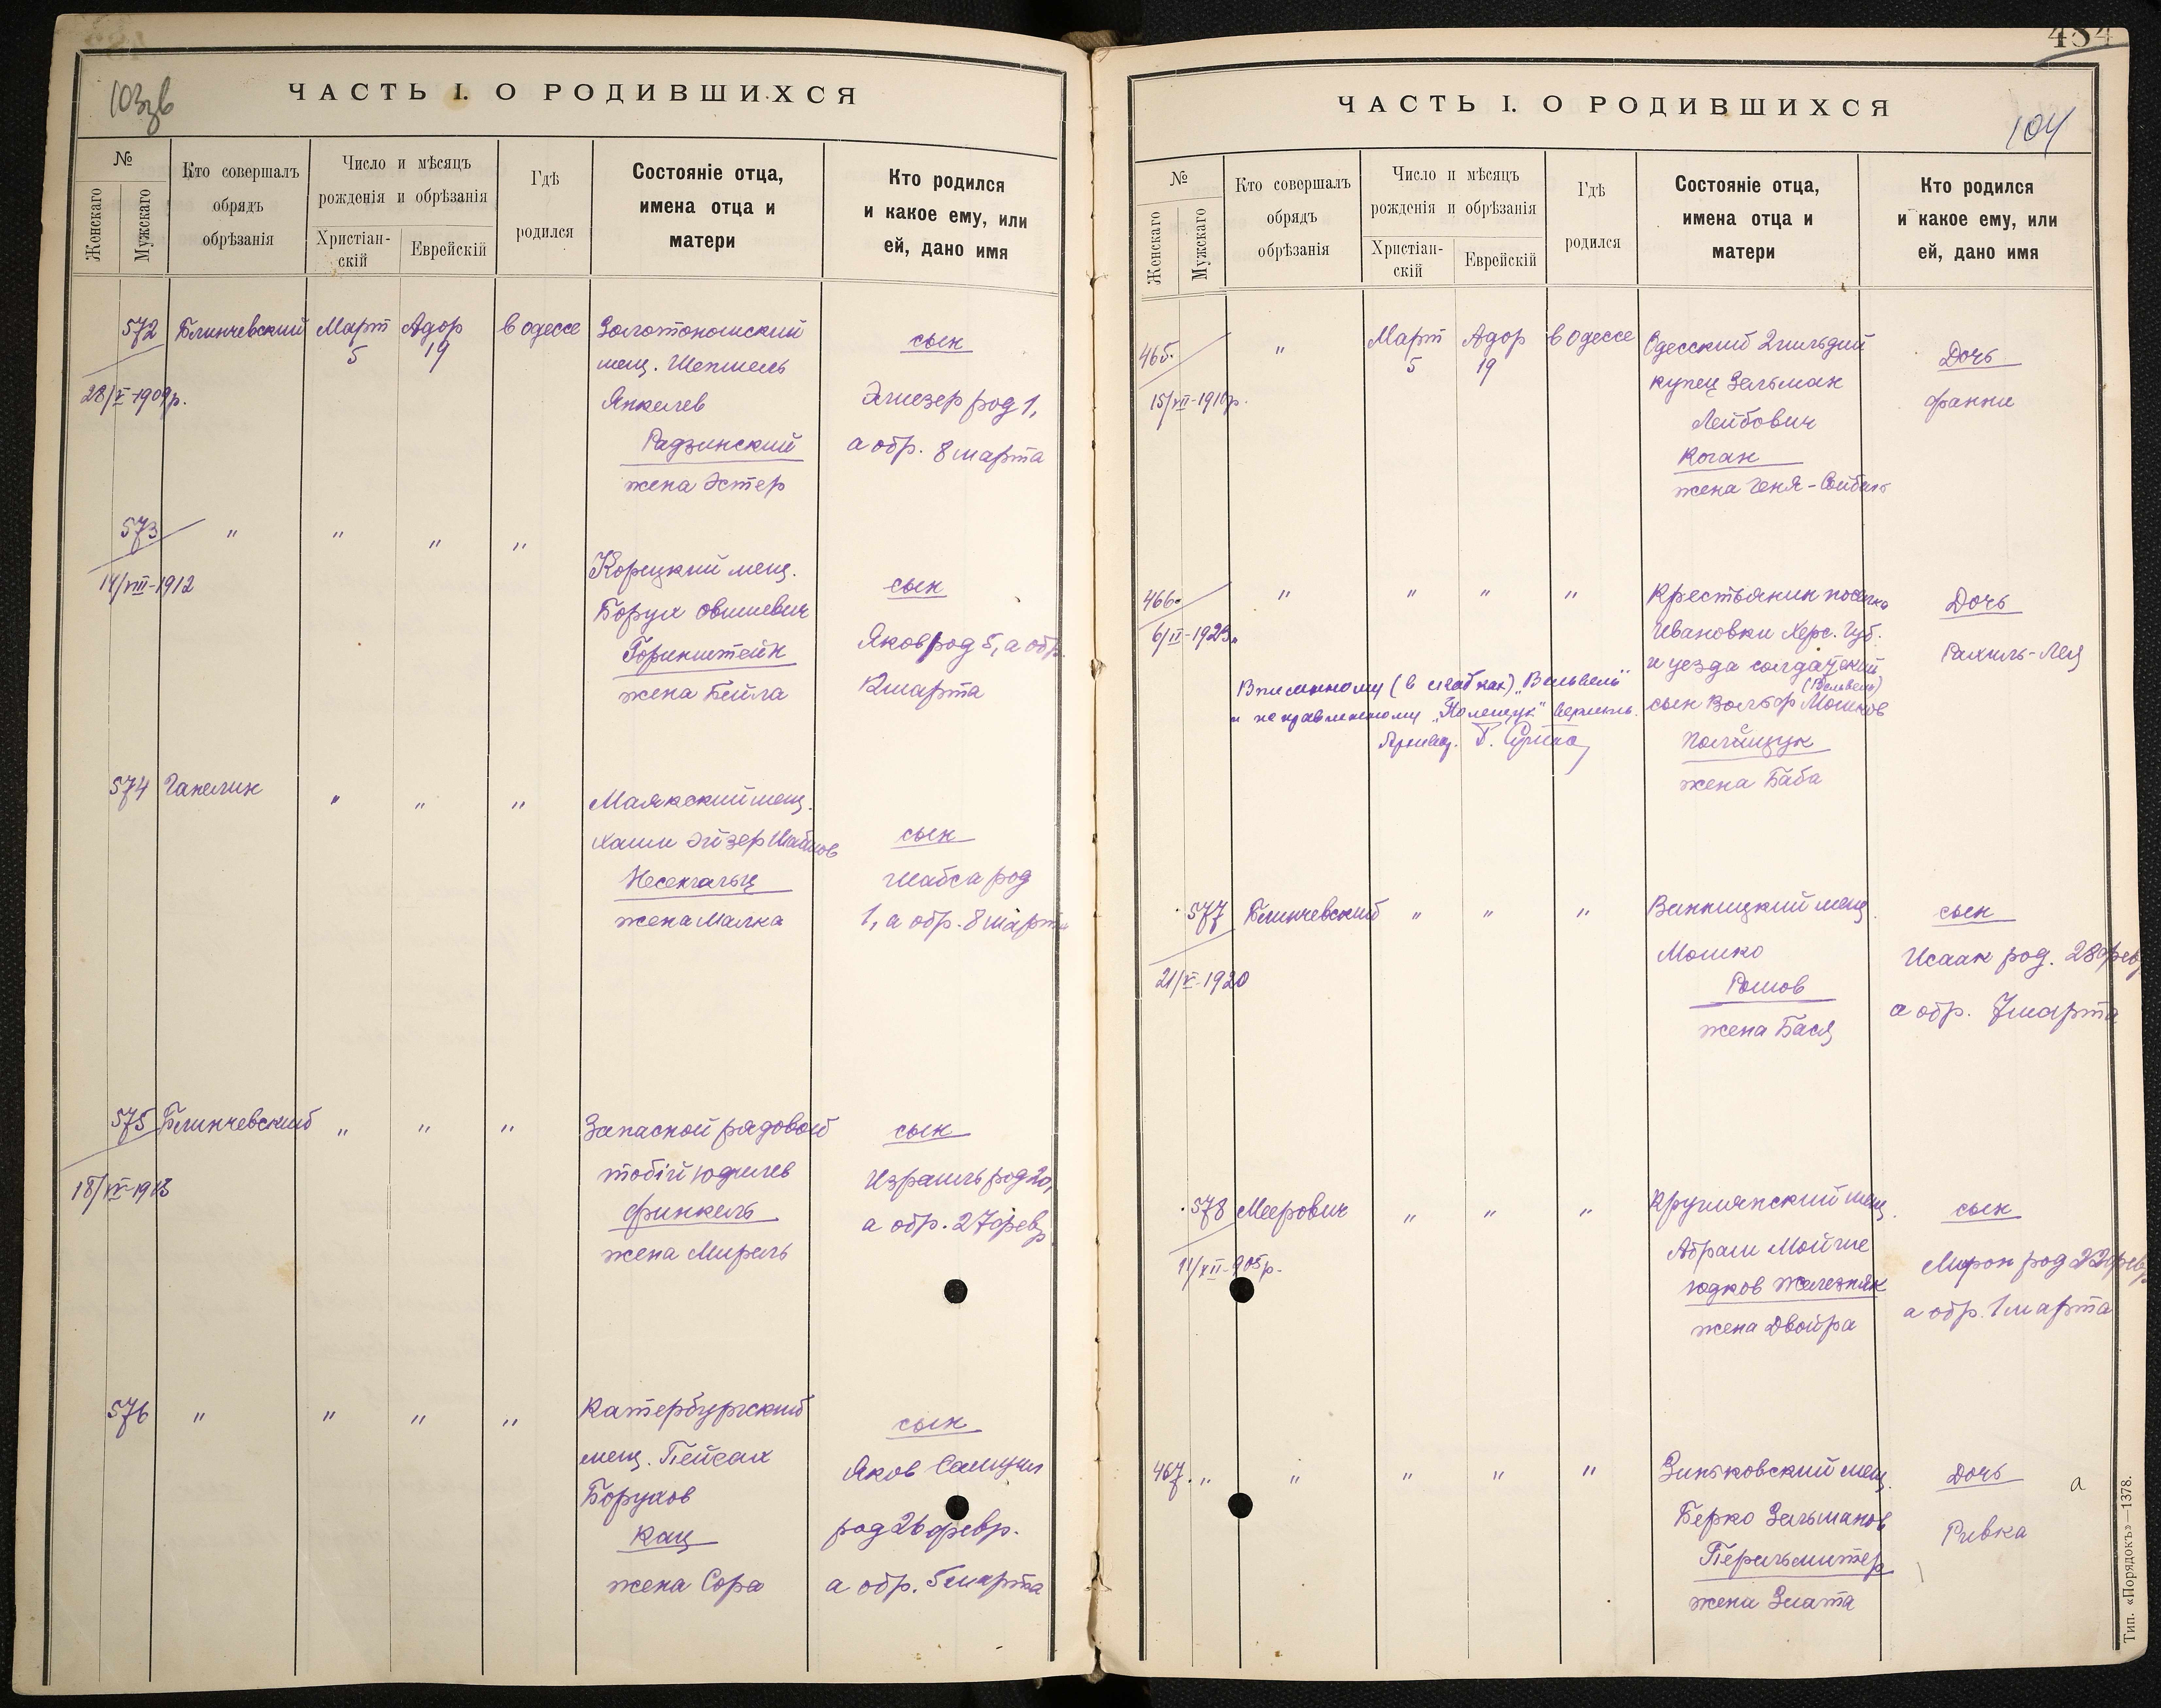 103зв
ЧАСТЬ I. О РОДИВШИХСЯ
№
Женскаго
Мужскаго
Кто совершалъ
обрядъ
обрѣзанія
Число и мѣсяцъ
рожденія и обрѣзанія
Христіан-
скій
Еврейскій
Гдѣ
родился
Состояніе отца,
имена отца и
матери
Кто родился
и какое ему, или
ей, дано имя
572 Блинчевский Март Адор в Одессе Золотоношский сын
5 19 мещ. Шепшель
28/V-1909р. Янкелев Элиезер род 1,
Радзинский а обр. 8 марта
жена Эстер
573 " " " "
14/VIII-1912 Корецкий мещ. сын
Борух Овшиевич
Горинштейн Яков род 5, а обр.
жена Бейла 12 марта
574 Гапелин " " " Маякский мещ.
Хаим Эйзер Шабсов сын
Несенгальц Шабса род
жена Малка 1, а обр. 8 марта
575 Блинчевский " " " Запасной рядовой сын
18/IV-1913 тобій Юделев Израиль род 20,
Финкель а обр. 27 февр.
жена Мирель
576 " " " " Катербургский сын
мещ. Пейсах Яков Самуил
Борухов
Кац род 26 февр.
жена Сора а обр. 5 марта
484
ЧАСТЬ I. О РОДИВШИХСЯ
104
№
Женскаго
Мужскаго
Кто совершалъ
обрядъ
обрѣзанія
Число и мѣсяцъ
рожденія и обрѣзанія
Христіан-
скій
Еврейскій
Гдѣ
родился
Состояніе отца,
имена отца и
матери
Кто родился
и какое ему, или
ей, дано имя
465. " Март Адор в Одессе Одесский 2 гильдии Дочь
5 19 купец Зельман
15/VII-1910р. Лейбович Фанни
Коган
жена Геня-
466. " " " " Крестьянин поселка Дочь
6/II-1923 Ивановки Херс. Губ. Рахиль-Лея
и уезда солдатский
(Вельвель)
сын Вольф Мошков
Вписанному (в скобках) „Вельвель"
и исправленному „Полещук"
Полищук
жена Баба
577 Блинчевский " " " Винницкий мещ. сын
21/V-1920 Мошко Исаак род. 28 февр.
Рашов а обр. 7 марта
жена Бася
578 Меерович " " " мещ. сын
11/XII-905р. Абрам Мойше Мирон род 22 февр.
Юдков Железняк а обр. 1 марта
жена Двойра
467. " " " " " Зиньковский мещ. Дочь а
Берко Зельманов Ривка
Перельмитер
жена Злата
Тип. «Порядокъ»—1378.